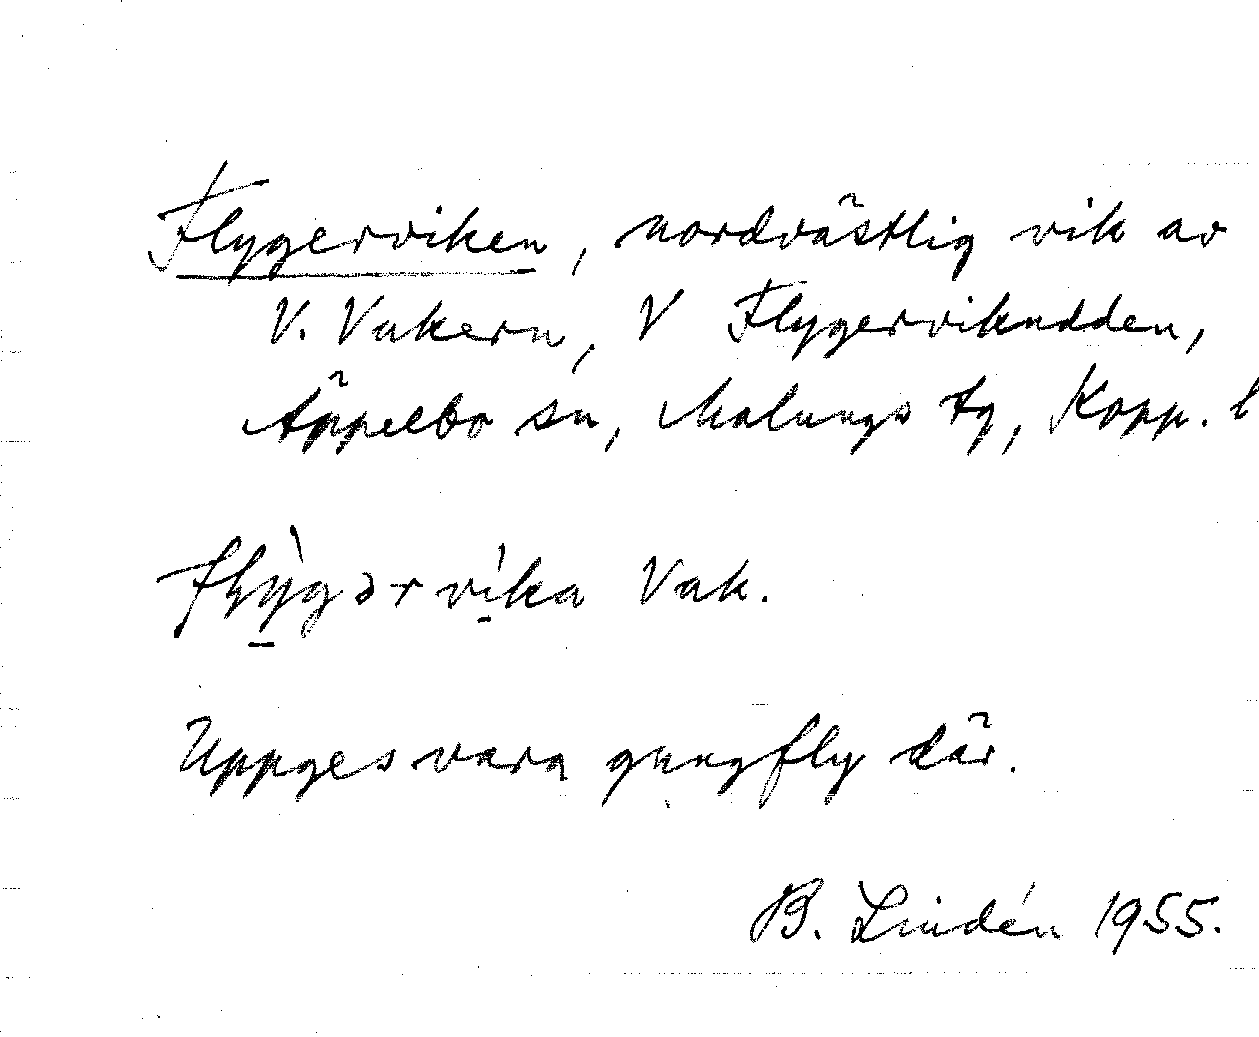 Flygerviken, nordvästlig vik av
V. Vakern, V Flygervikudden,
Äppelbo sn, Malungs tg, Kopp. l
flỳgərvíka Vak.
Uppges vara gungfly där.
B. Lindén 1955.